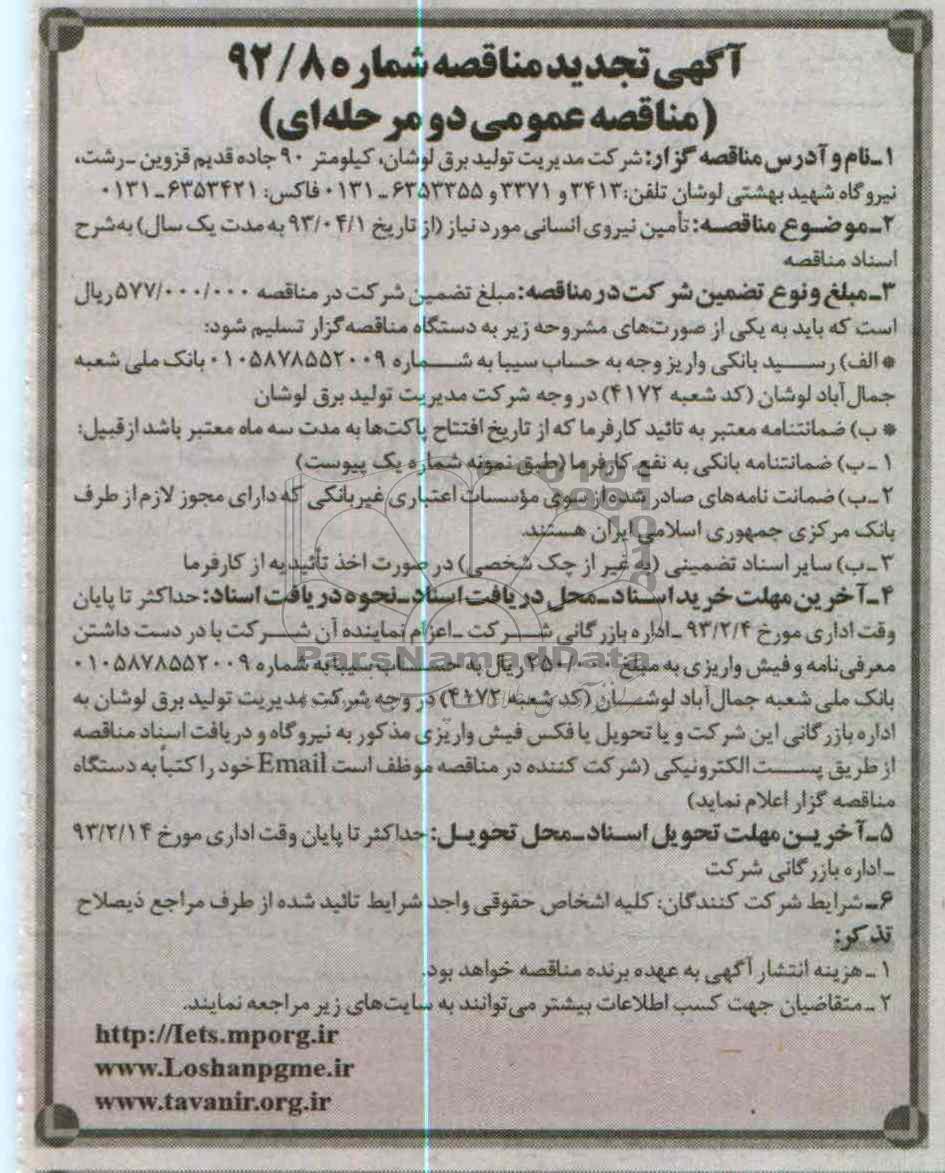 آگهی تجدید مناقصه شماره ۹۲/۸
(مناقصه عمومی دو مرحله‌ای)
۱ـ نام و آدرس مناقصه گزار: شرکت مدیریت تولید برق لوشان، کیلومتر ۹۰ جاده قدیم قزوین ـ رشت،
نیروگاه شهید بهشتی لوشان تلفن: ۳۴۱۳ و ۳۳۷۱ و ۶۳۵۳۳۵۵ ـ ۰۱۳۱ فاکس: ۶۳۵۳۴۲۱ ـ ۰۱۳۱
۲ـ موضوع مناقصه: تأمین نیروی انسانی مورد نیاز (از تاریخ ۹۳/۰۴/۱ به مدت یک سال) به‌شرح
اسناد مناقصه
۳ـ مبلغ و نوع تضمین شرکت در مناقصه: مبلغ تضمین شرکت در مناقصه ۵۷۷/۰۰۰/۰۰۰ ریال
است که باید به یکی از صورت‌های مشروحه زیر به دستگاه مناقصه‌گزار تسلیم شود:
* الف) رسید بانکی واریز وجه به حساب سیبا به شماره ۰۱۰۵۸۷۸۵۵۲۰۰۹ بانک ملی شعبه
جمال‌آباد لوشان (کد شعبه ۴۱۷۲) در وجه شرکت مدیریت تولید برق لوشان
* ب) ضمانتنامه معتبر به تائید کارفرما که از تاریخ افتتاح پاکت‌ها به مدت سه ماه معتبر باشد از قبیل:
۱ ـ ب) ضمانتنامه بانکی به نفع کارفرما (طبق نمونه شماره یک پیوست)
۲ ـ ب) ضمانت نامه‌های صادر شده از سوی مؤسسات اعتباری غیربانکی که دارای مجوز لازم از طرف
بانک مرکزی جمهوری اسلامی ایران هستند.
۳ ـ ب) سایر اسناد تضمینی (به غیر از چک شخصی) در صورت اخذ تأئیدیه از کارفرما
۴ـ آخرین مهلت خرید اسناد ـ محل دریافت اسناد ـ نحوه دریافت اسناد: حداکثر تا پایان
وقت اداری مورخ ۹۳/۲/۴ ـ اداره بازرگانی شرکت ـ اعزام نماینده آن شرکت با در دست داشتن
معرفی‌نامه و فیش واریزی به مبلغ ۲۵۰/۰۰۰ ریال به حساب سیبا به شماره ۰۱۰۵۸۷۸۵۵۲۰۰۹
بانک ملی شعبه جمال‌آباد لوشان (کد شعبه ۴۱۷۲) در وجه شرکت مدیریت تولید برق لوشان به
اداره بازرگانی این شرکت و یا تحویل یا فکس فیش واریزی مذکور به نیروگاه و دریافت اسناد مناقصه
از طریق پست الکترونیکی (شرکت کننده در مناقصه موظف است Email خود را کتباً به دستگاه
مناقصه گزار اعلام نماید)
۵ـ آخرین مهلت تحویل اسناد ـ محل تحویل: حداکثر تا پایان وقت اداری مورخ ۹۳/۲/۱۴
ـ اداره بازرگانی شرکت
۶ـ شرایط شرکت کنندگان: کلیه اشخاص حقوقی واجد شرایط تائید شده از طرف مراجع ذیصلاح
تذکر:
۱ ـ هزینه انتشار آگهی به عهده برنده مناقصه خواهد بود.
۲ ـ متقاضیان جهت کسب اطلاعات بیشتر می‌توانند به سایت‌های زیر مراجعه نمایند.
http://Iets.mporg.ir
www.Loshanpgme.ir
www.tavanir.org.ir
ParsNamadData